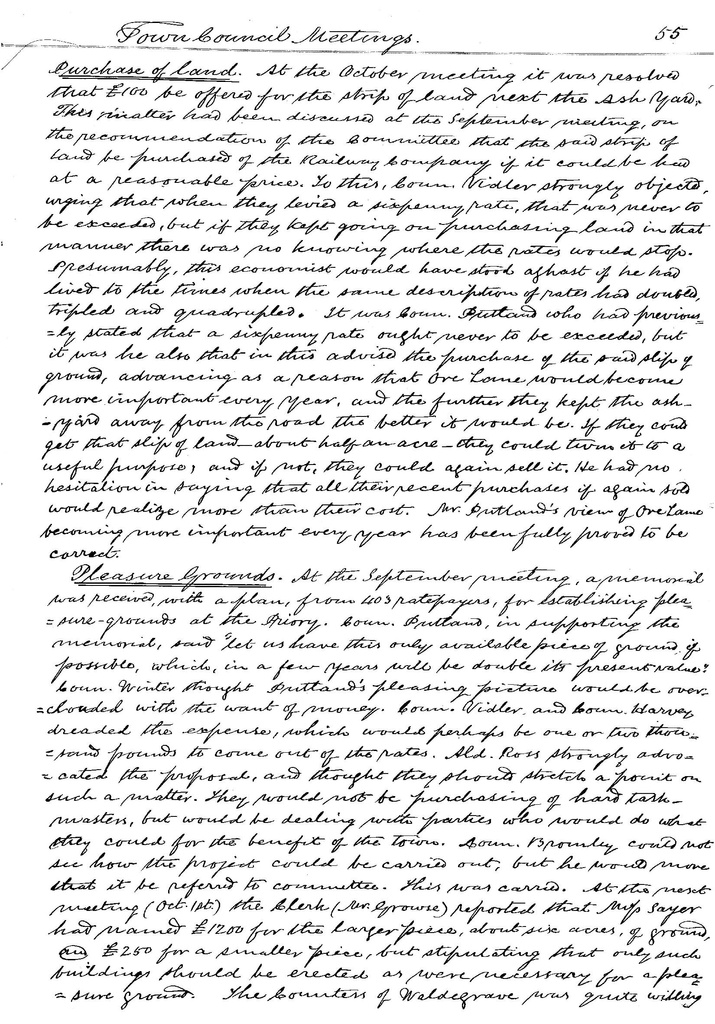 Town Council Meetings. 55
Purchase of land. At the October meeting it was resolved
that £100 be offered for the strip of land next the Ash Yard.
This matter had been discussed at the September meeting, on
the recommendation of the Committee that the said strip of
land be purchased of the Railway Company if it could be had
at a reasonable price. To this, Coun. Vidler strongly objected,
urging that when they levied a sixpenny rate, that was never to
be exceeded, but if they kept going on purchasing land in that
manner there was no knowing where the rates would stop.
Presumably, this economist would have stood aghast if he had
lived to the times when the same description of rates had doubled,
tripled and quadrupled. It was Coun. Putland who had previous=
=ly stated that a sixpenny rate ought never to be exceeded, but
it was he also that in this advised the purchase of the said slip of
ground, advancing as a reason that Ore Lane would become
more important every year, and the further they kept the ash-
-yard away from the road the better it would be. If they could
get that slip of land—about half an acre—they could turn it to a
useful purpose; and if not, they could again sell it. He had no
hesitation in saying that all their recent purchases if again sold
would realize more than their cost. Mr. Putland's view of Ore Lane
becoming more important every year has been fully proved to be
correct.
Pleasure Grounds. At the September meeting, a memorial
was received, with a plan, from 403 ratepayers, for establishing plea=
=sure-grounds at the Priory. Coun. Putland, in supporting the
memorial, said "let us have this only available piece of ground, if
possible, which, in a few years will be double its present value."
Coun. Winter thought Putland's pleasing picture would be over=
=clouded with the want of money. Coun. Vidler and Coun. Harvey
dreaded the expense, which would perhaps be one or two thou=
=sand pounds to come out of the rates. Ald. Ross strongly advo=
=cated the proposal, and thought they should stretch a point on
such a matter. They would not be purchasing of hard task-
masters, but would be dealing with parties who would do what
they could for the benefit of the town. Coun. Bromley could not
see how the project could be carried out, but he would move
that it be referred to committee. This was carried. At the next
meeting (Oct. 1st) the Clerk (Mr. Growse) reported that Miss Sayer
had named £1200 for the larger piece, about six acres, of ground,
and £250 for a smaller piece, but stipulating that only such
buildings should be erected as were necessary for a plea=
=sure ground. The Countess of Waldegrave was quite willing